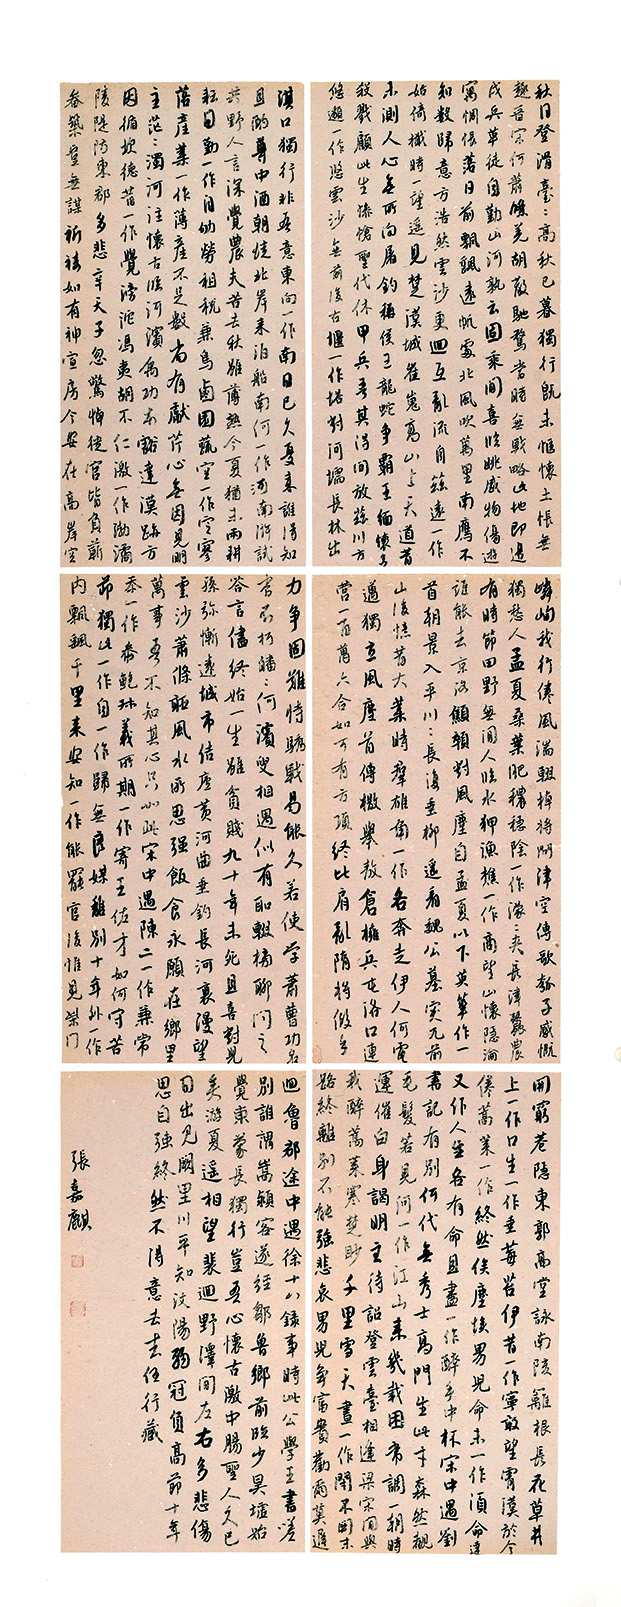 秋日登滑臺〻高秋已暮獨行既未愜懷土悵無
趣晉宋何蕭條羌胡散馳騖當時無戰略此地即邊
戍兵革徒自勤山河孰云固乘閒喜臨眺感物傷遊
寓惆悵落日前飄颻遠帆處北風吹萬里南雁不
知數歸意方浩然雲沙更迴互亂流自茲遠一作
始倚檝時一望遙見楚漢城崔嵬高山上天道昔
未測人心無所向屠釣稱侯王龍蛇爭霸王緬懷多
殺戮顧此生慘愴聖代休甲兵吾其得閒放茲川方
悠邈一作悠雲沙無前後古堰一作塔對河壖長林出
淇口獨行非吾意東向一作南日已久憂來誰得知
且酌尊中酒朝從北岸來泊船南河一作河南滸試
共野人言深覺農夫苦去秋雖薄熟今夏猶未雨耕
耘日勤一作自劬勞租稅兼舄鹵園蔬空一作空寥
落產業一作薄產不足數尚有獻芹心無因見明
主茫〻濁河注懷古臨河濱禹功本豁達漢跡方
因循坎德昔一作覺滂沱馮夷胡不仁激一作渤潏
陵隄防東郡多悲辛天子忽驚悼從官皆負薪
畚築豈無謀祈禱如有神宣房今安在高岸空
嶙峋我行倦風湍輟棹將問津空傳歌瓠子感慨
獨愁人孟夏桑葉肥穠陰一作濛〻夾長津蠶農
有時節田野無閒人臨水狎漁樵一作商望山懷隱淪
誰能去京洛顦顇對風塵自孟夏以下英華作一
首朝景入平川〻長復垂柳遙看魏公墓突兀前
山後憶昔大業時群雄角一作各奔走伊人何電
邁獨立風塵首傳檄舉敖倉擁兵屯洛口連
營一百萬六合如可有方項終比肩亂隋將假手
力爭固難恃驕戰曷能久若使學蕭曹功名
當不朽皤〻何濱叟相遇似有恥輟榜聊問之
答言盡終始一生雖貧賤九十年未死且喜對兒
孫彌慚遠城市結廬黃河曲垂釣長河裏漫望
雲沙蕭條聽風水所思強飯食永願在鄉里
萬事吾不知其心只如此宋中遇陳二一作兼常
忝一作參鮑叔義所期一作寄王佐才如何守苦
節獨此一作自一作歸無良媒離別十年外一作
內飄颻千里來安知一作能罷官後惟見柴門
開窮巷隱東郭高堂詠南陔籬根長花草井
上一作口生一作垂莓苔伊昔一作寧敢望霄漢於今
倦蒿萊一作終然俟塵埃男兒命未一作須命達
又作人生各有命且盡一作醉手中杯宋中遇劉
書記有別何代無秀士高門生此才森然覩
毛髮若見河一作江山來幾載困常調一朝時
運催白身謁明主待詔登雲臺相逢梁宋間與
我醉蒿萊寒楚眇千里雪天晝一作閉不開末
路終離別不能強悲哀男兒爭富貴勸爾莫遲
迴魯郡途中遇徐十八錄事時此公學王書嗟
別誰謂嵩潁客遂經鄒魯鄉前臨少昊墟始
覺東蒙長獨行豈吾心懷古激中腸聖人久已
矣游夏遙相望裴迴野澤間左右多悲傷
日出見闕里川平知汶陽弱冠負高節十年
思自強終然不得意去去任行藏
張嘉麒